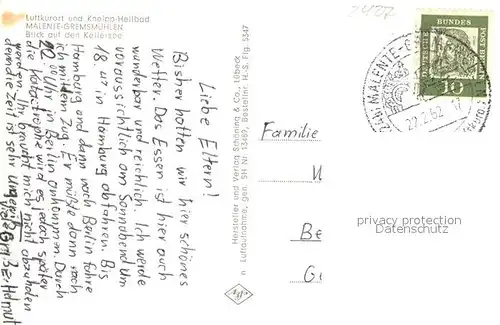 2427
Luftkurort und Kneipp-Heilbad
MALENTE-GREMSMÜHLEN
Blick auf den Kellersee
Liebe Eltern!
Bisher hatten wir hier schönes
Wetter. Das Essen ist hier auch
wunderbar und reichlich. Ich werde
voraussichtlich am Sonnabend um
18 in Hamburg abfahren. Bis
Hamburg und dann nach Berlin fahre
ich mit dem Zug. Er müßte dann nach
in Berlin ankommen. Durch
die Katastrophe wird es jedoch später
werden. Ihr braucht mich nicht abzuholen
denn die Zeit ist sehr
Helmut
Hersteller und Verlag Schöning & Co., Lübeck
Luftaufnahme, gen. SH Nr. Bestellnr. H.S. Flg. 5347
DEUTSCHE BUNDESPOST BERLIN
10
MALENTE-G
27.2.62
Familie
W
Be
privacy protection
Datenschutz